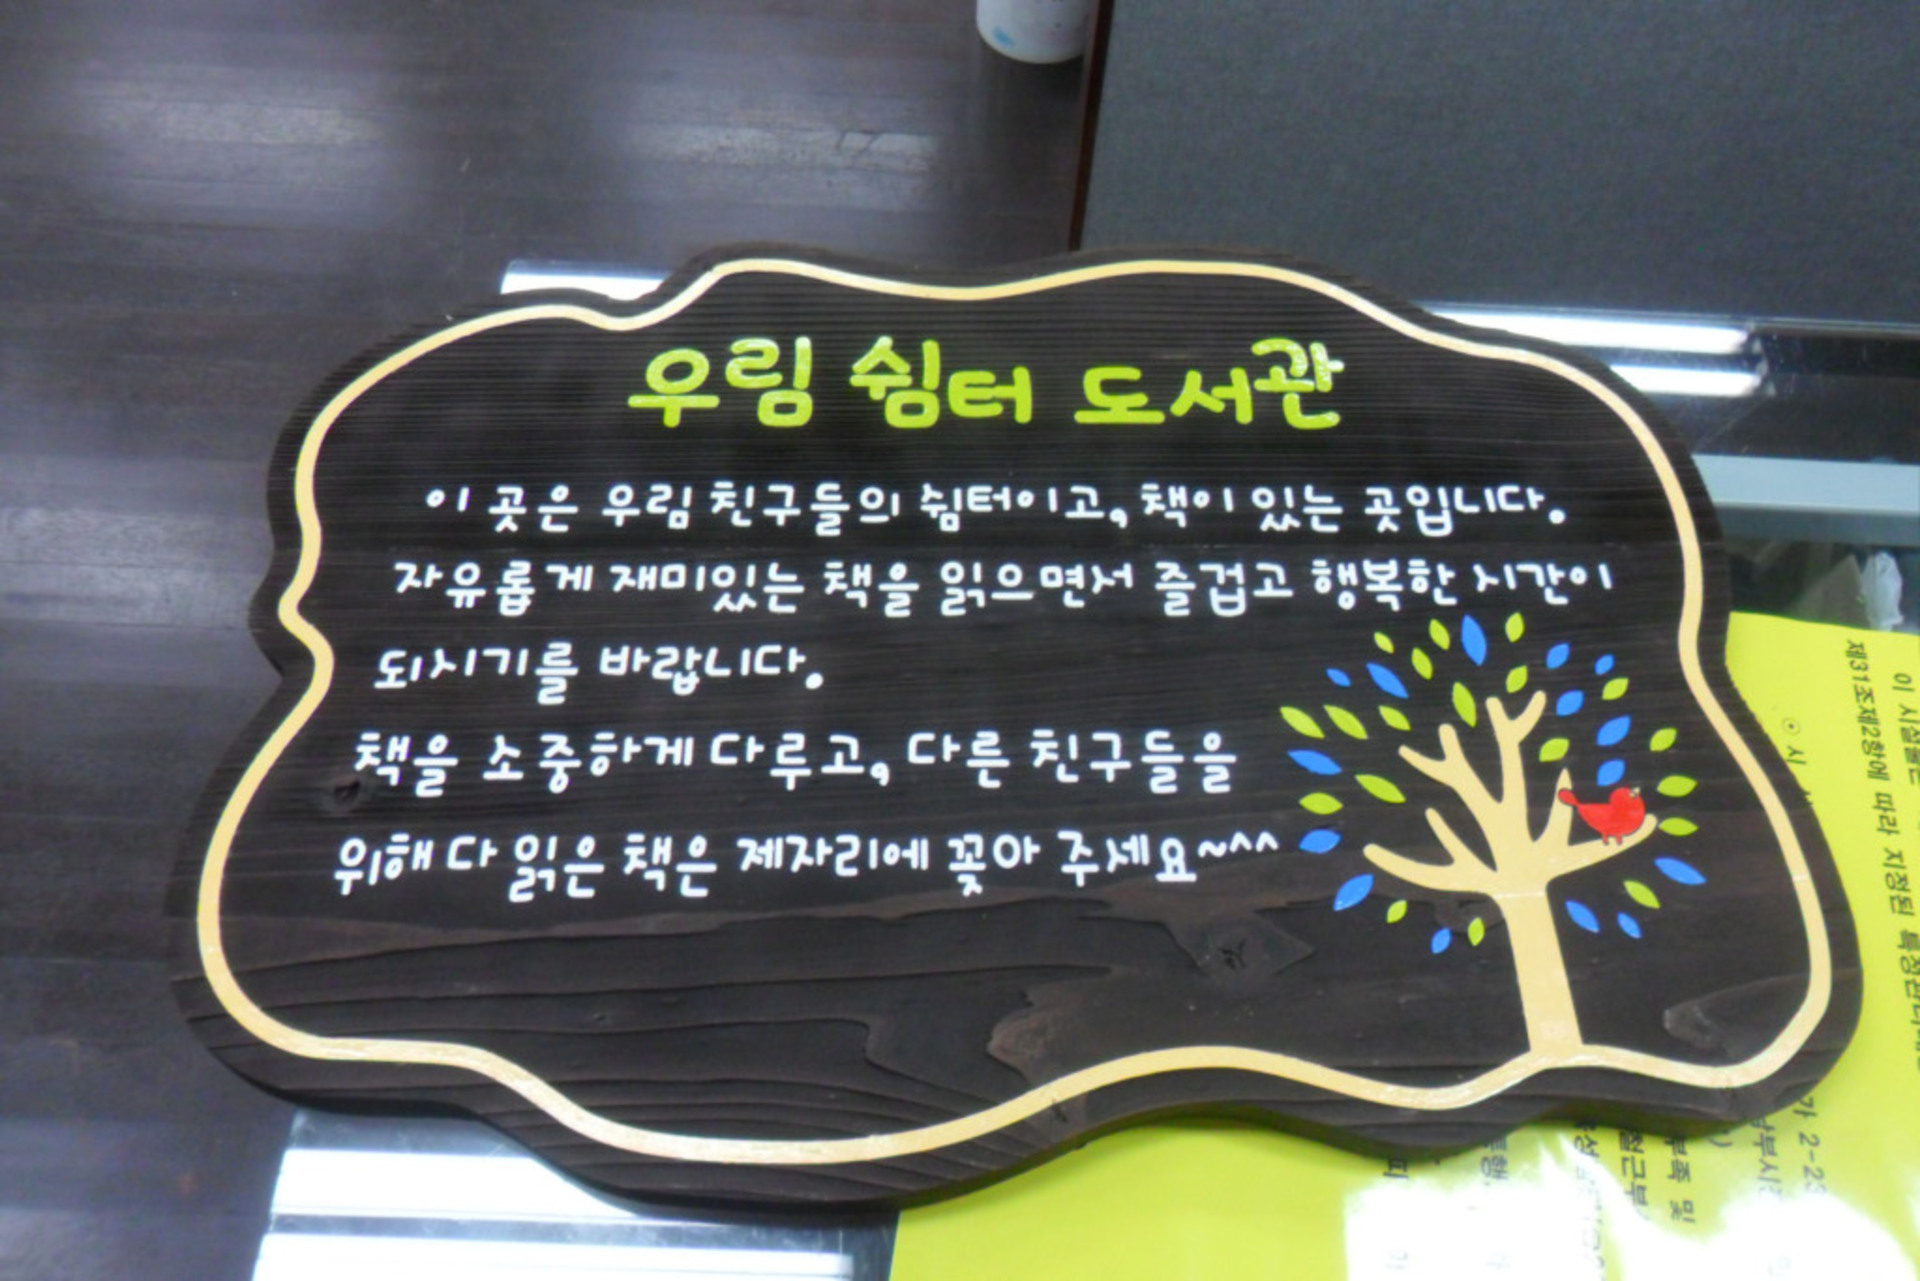 우림 쉼터 도서관
이 곳은 우림 친구들의 쉼터이고, 책이 있는 곳입니다.
자유롭게 재미있는 책을 읽으면서 즐겁고 행복한 시간이
되시기를 바랍니다.
책을 소중하게 다루고, 다른 친구들을
위해 다 읽은 책은 제자리에 꽂아 주세요~^^
이 시설물은
제31조제2항에 따라 지정된